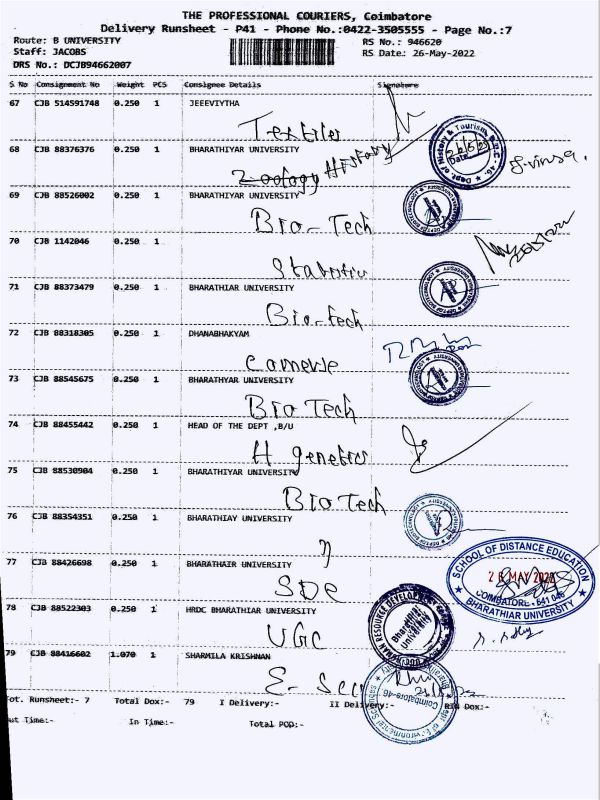 THE PROFESSIONAL COURIERS, Coimbatore
Delivery Runsheet - P41 - Phone No.:0422-3505555 - Page No.:7
Route: B UNIVERSITY RS No.: 946620
Staff: JACOBS RS Date: 26-May-2022
DRS No.: DCJB94662007
S No Consignment No Weight PCS Consignee Details Signature
67 CJB 514591748 0.250 1 JEEEVIYTHA
Textiles
68 CJB 88376376 0.250 1 BHARATHIYAR UNIVERSITY
Zoology History
Dept of History & Tourism
Date
69 CJB 88526002 0.250 1 BHARATHIYAR UNIVERSITY
Bio-Tech
70 CJB 1142046 0.250 1
71 CJB 88373479 0.250 1 BHARATHIAR UNIVERSITY
Bio-tech
72 CJB 88318305 0.250 1 DHANABHAKYAM
73 CJB 88545675 0.250 1 BHARATHYAR UNIVERSITY
Bio Tech
74 CJB 88455442 0.250 1 HEAD OF THE DEPT ,B/U
H genetics
75 CJB 88530904 0.250 1 BHARATHIYAR UNIVERSITY
Bio Tech
76 CJB 88354351 0.250 1 BHARATHIAY UNIVERSITY
77 CJB 88426698 0.250 1 BHARATHAIR UNIVERSITY
SDE
SCHOOL OF DISTANCE EDUCATION
26 MAY 2022
COIMBATORE - 641 046
BHARATHIAR UNIVERSITY
78 CJB 88522303 0.250 1 HRDC BHARATHIAR UNIVERSITY
UGC
Bharathiar University
79 CJB 88416602 1.070 1 SHARMILA KRISHNAN
E-Sci
Coimbatore-46
Tot. Runsheet:- 7 Total Dox:- 79 I Delivery:- II Delivery:- RTN Dox:-
ut Time:- In Time:- Total POD:-